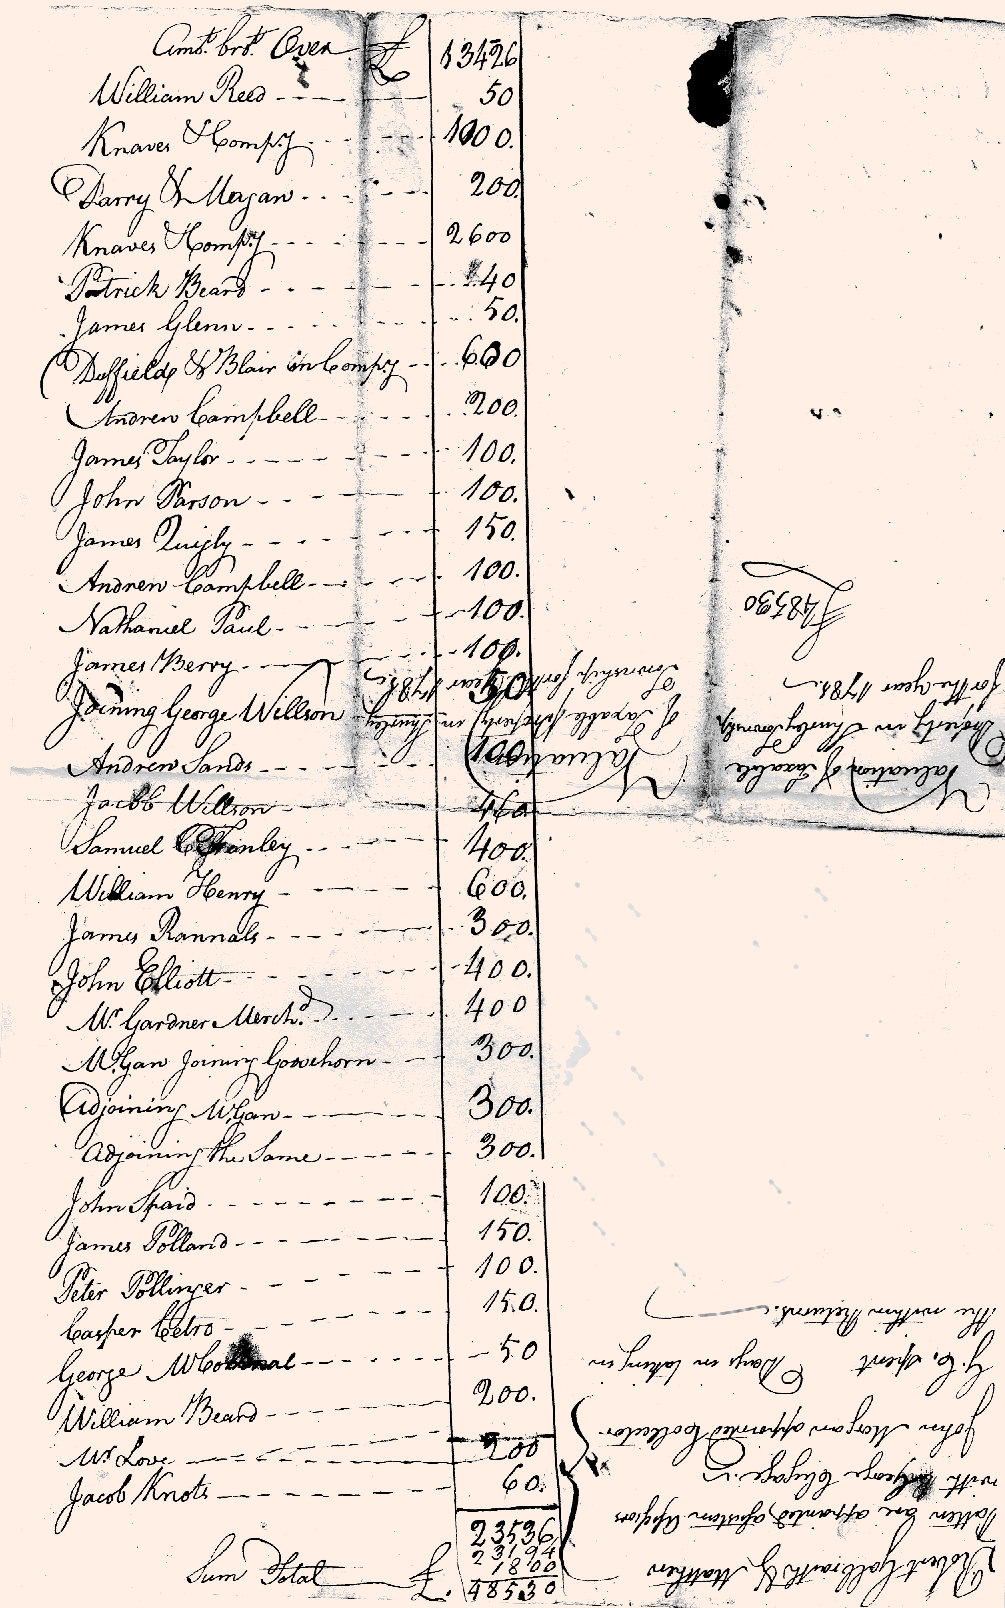 Amt. brt. Over £ 13426
William Reed 50
Knaves & Compy 1000.
Barry & Magan 200.
Knaves & Compy 2600
Patrick Beard 40
James Glenn 50.
Duffield & Blair in Compy 600
Andrew Campbell 200.
James Taylor 100.
John Parson 100.
James Quigly 150.
Andrew Campbell 100.
Nathaniel Paul 100.
James Berry 100.
Joining George Willson 50
Andrew Sands 100
Jacob Willson
Samuel Finley 400.
William Henry 600.
James Rannals 300.
John Elliott 400.
Mr. Gardner Mercht. 400
McGan Joining Gowehorn 300.
Adjoining McGan 300.
Adjoining the Same 300.
John Spaid 100.
James Polland 150.
Peter Pollinger 100.
Casper Cetro 150.
George 50
William Beard 200.
Mr. Love 200
Jacob Knots 60.
23536
1800
Sum Total £ 48530
Valuation
of Taxable property in Shirley
Township for the year 1788
Valuation of Taxable
Property in Shirley Township
for the year 1788
£48530
Robert Galbraith & Matthew
Patten are appointed assistant Assessors
with George Clugage
John Morgan appointed Collector
G. C. spent Days in taking in
the within Returns.